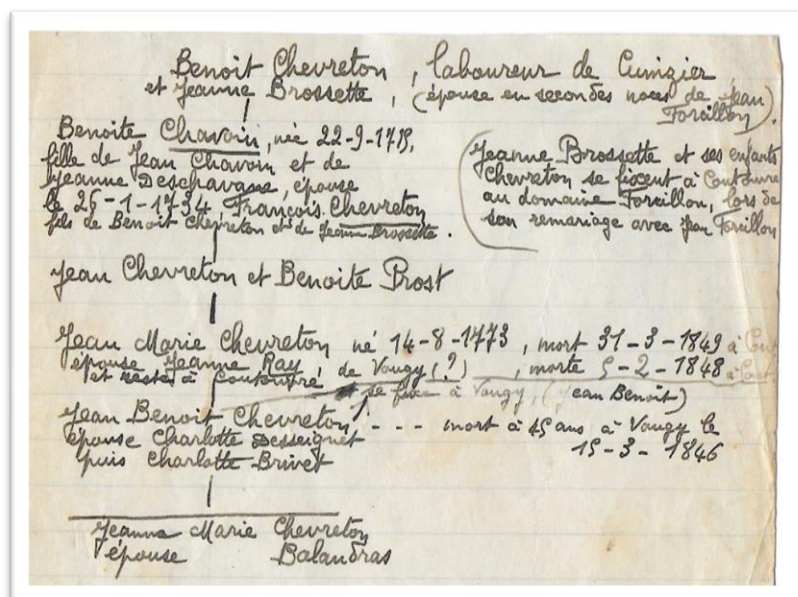 Benoit Chevreton, laboureur de Cuinzier
et Jeanne Brossette, (épouse en secondes noces de Jean
Forcillon).
Benoite Chavoin, née 22-9-1715,
fille de Jean Chavoin et de
Jeanne Deschavane, épouse
le 26-1-1734, François Chevreton
fils de Benoit Chevreton et de Jeanne Brossette.
(Jeanne Brossette et ses enfants
Chevreton se fixent à Coutouvre
au domaine Forcillon, lors de
son remariage avec Jean Forcillon
Jean Chevreton et Benoite Prost
Jean Marie Chevreton né 14-8-1773, mort 31-3-1849 à Cout
épouse Jeanne Ray de Vougy (?), morte 5-2-1848 à Cout.
et reste à Coutouvre
se fixe à Vougy, (Jean Benoit)
Jean Benoit Chevreton, - - - mort à 45 ans à Vougy le
15-3-1846
épouse Charlotte Desseignet
puis Charlotte Brivet
Jeanne Marie Chevreton
épouse Balandras